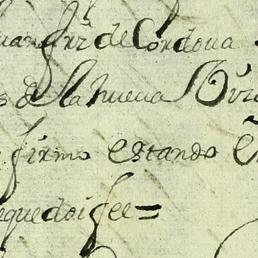 Juan frz de Cordoua
de la nueua
firmo estando
que doi fee =